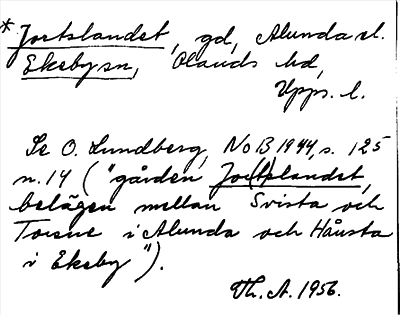 * Jortslandet, gd, Alunda sl.
Ekeby sn, Olands hd,
Upps. l.
Se O. Lundberg, NoB 1944, s. 125
n. 14 ("gården Jor(t)slandet,
belägen mellan Svista och
Torsne i Alunda och Hånsta
i Ekeby").
Th. A. 1956.